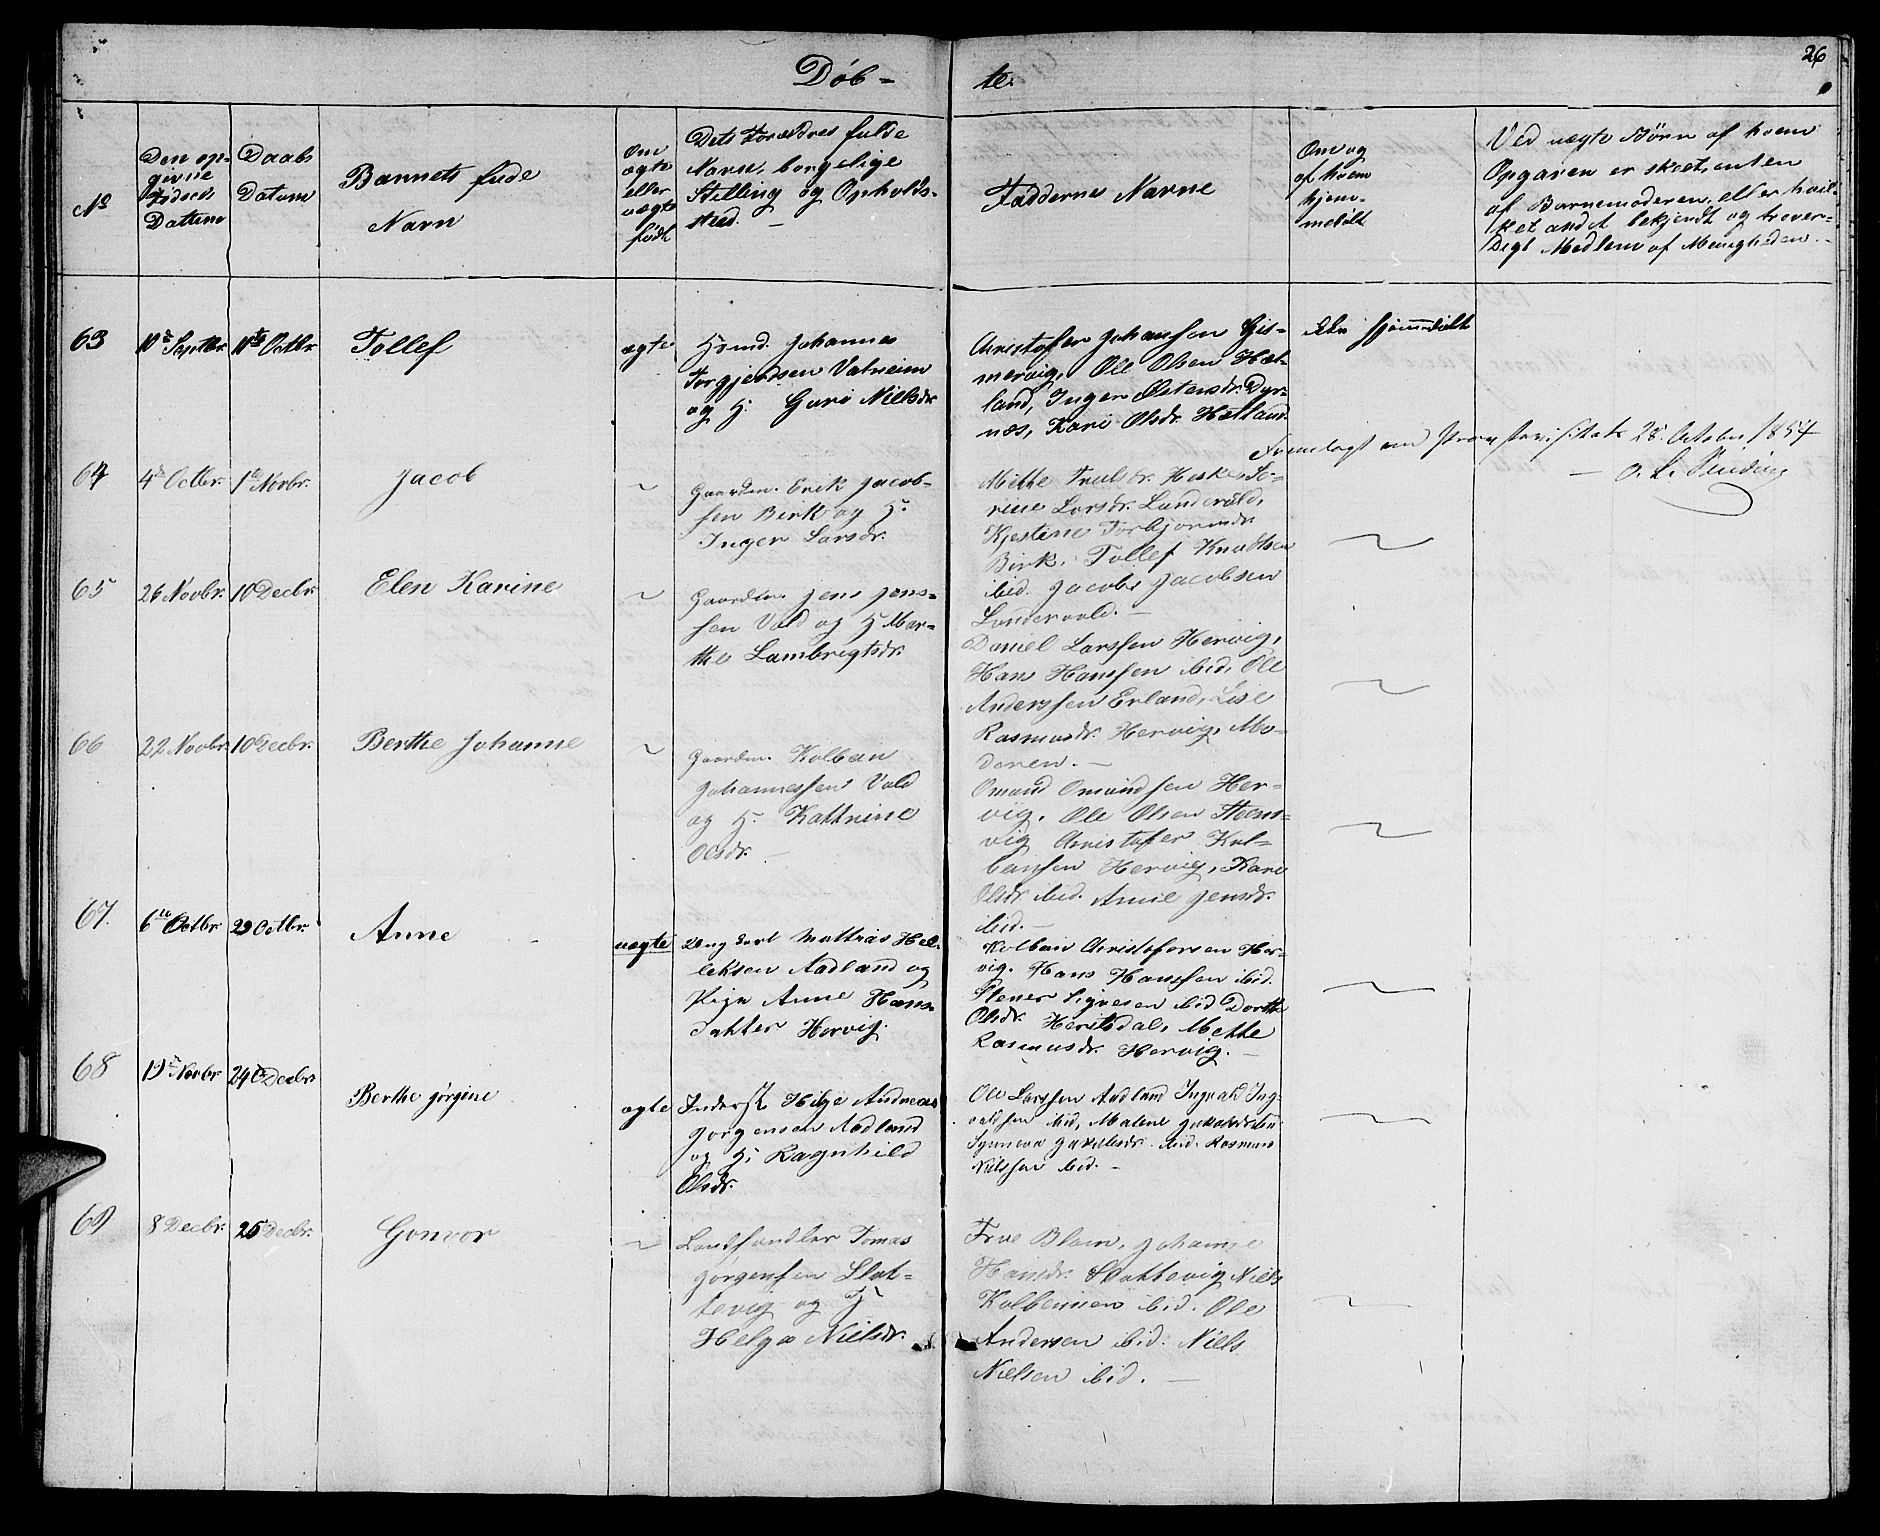 26
Döb- te.
No
Den op-
givne
Fødsels
Datum
Daabs
Datum
Barnets fulde
Navn
Om
ægte
eller
uægte
født
Dets Forældres fulde
Navn, borgelige
Stilling og Opholds-
sted. -
Faddernes Navne
Om og
af hvem
hjem-
medöbt
Ved uægte Börn af hvem
Opgaven er skeet, enten
af Barnemoderen, eller hvil-
ket andet bekjendt og trover-
digt Medlem af Menigheden. -
63 10de Septbr. 1ste Octbr. Tollef ægte Hsmd. Johannes
Torgjerdsen Vatneim
og H. Guro Nielsdr.
Christofer Johansen Gis-
mervig, Ole Olsen Hæt-
land, Inger Østensdr. Dyr-
næs, Kari Olsdr. Hætland.
ikke hjemmedöbt
Fremlagt ved Provstevisitats 28. October 1854
64 4de Octbr. 1ste Novbr. Jacob ~ Gaardm. Erik Jacob-
sen Berk og H.
Inger Larsdr.
Mette Trulsdr. Heske, Se-
rine Larsdr. Landevald,
Kjestine Torbjörnsdr.
Birk, Tollef Knudtsen
ibid. Jacob Jacobsen
Landevald. -
65 26 Novbr. 10 Decbr. Elen Karine ~ Gaardm. Jens Jens-
sen Vald og H. Mar-
the Lambregtsdr.
Daniel Larssen Hervig,
Hans Hanssen ibid, Ole
Anderssen Erland, Lise
Rasmusdr. Hervig, Mo-
deren. -
66 22 Novbr. 10 Decbr. Berthe Johanne ~ Gaardm. Kolben
Johannessen Vald
og H. Kattrine
Olsdr. -
Omund Omundsen Her-
vig, Ole Olsen Stens-
vig Christofer Kol-
bensen Hervig, Kari
Olsdr. ibid. Anne Jensdr.
ibid. -
67. 6te Octbr. 29 Octbr. Anne uægte Ung Karl Mattias Hel-
leksen Aadland og
Pige Anne Hans-
Datter Hervig.
Kolben Christofersen Her-
vig. Hans Hanssen ibid.
Stener Sigvesen ibid Dorthe
Olsdr. Heritsdal, Mette
Rasmusdr. Hervig. -
68 19de Novbr. 24de Decbr. Berthe Jörgine ægte Inderst Helge Andreas
Jörgensen Aadland
og H. Ragnhild
Olsdr.
Ole Larssen Aadland Ingvald Ing-
valdsen ibid, Malene Jakobsdr. ibid
Synneva Jakobsdr. ibid. Rasmus
Nilssen ibid. -
69 8 Decbr. 25 Decbr. Gonvor ~ Landhandler Tomas
Jörgensen Slat-
tevig og H.
Helga Nielsdr.
Frue Blom, Johanne
Hansdr. Slattevig, Niels
Kolbensen ibid. Ole
Andersen ibid. Niels
Nielsen ibid. -